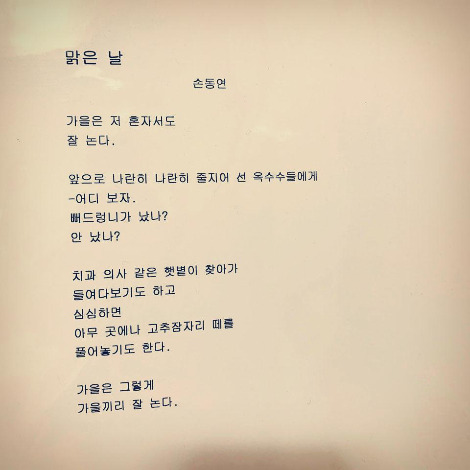 맑은 날
손동연
가을은 저 혼자서도
잘 논다.
앞으로 나란히 나란히 줄지어 선 옥수수들에게
-어디 보자.
뻐드렁니가 났나?
안 났나?
치과 의사 같은 햇볕이 찾아가
들여다보기도 하고
심심하면
아무 곳에나 고추잠자리 떼를
풀어놓기도 한다.
가을은 그렇게
가을끼리 잘 논다.